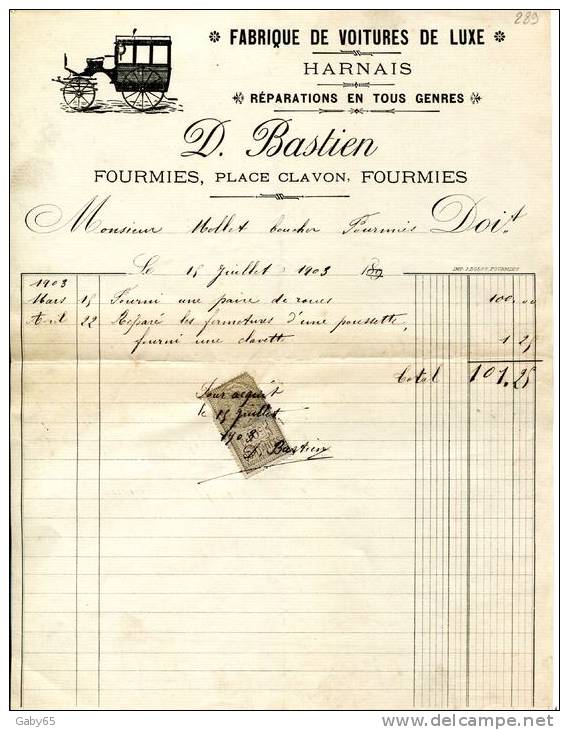 289
FABRIQUE DE VOITURES DE LUXE
HARNAIS
RÉPARATIONS EN TOUS GENRES
D. Bastien
FOURMIES, PLACE CLAVON, FOURMIES
Monsieur Mollet boucher Fourmies Doit
Le 15 Juillet 1903
1903
Mars 15 Fourni une paire de roues 100,00
Avril 22 Réparé les fermetures d'une poussette,
fourni une clavette 1 25
total 101,25
Pour acquit
le 15 Juillet
1903
D. Bastien
Gaby65
www.delcampe.net